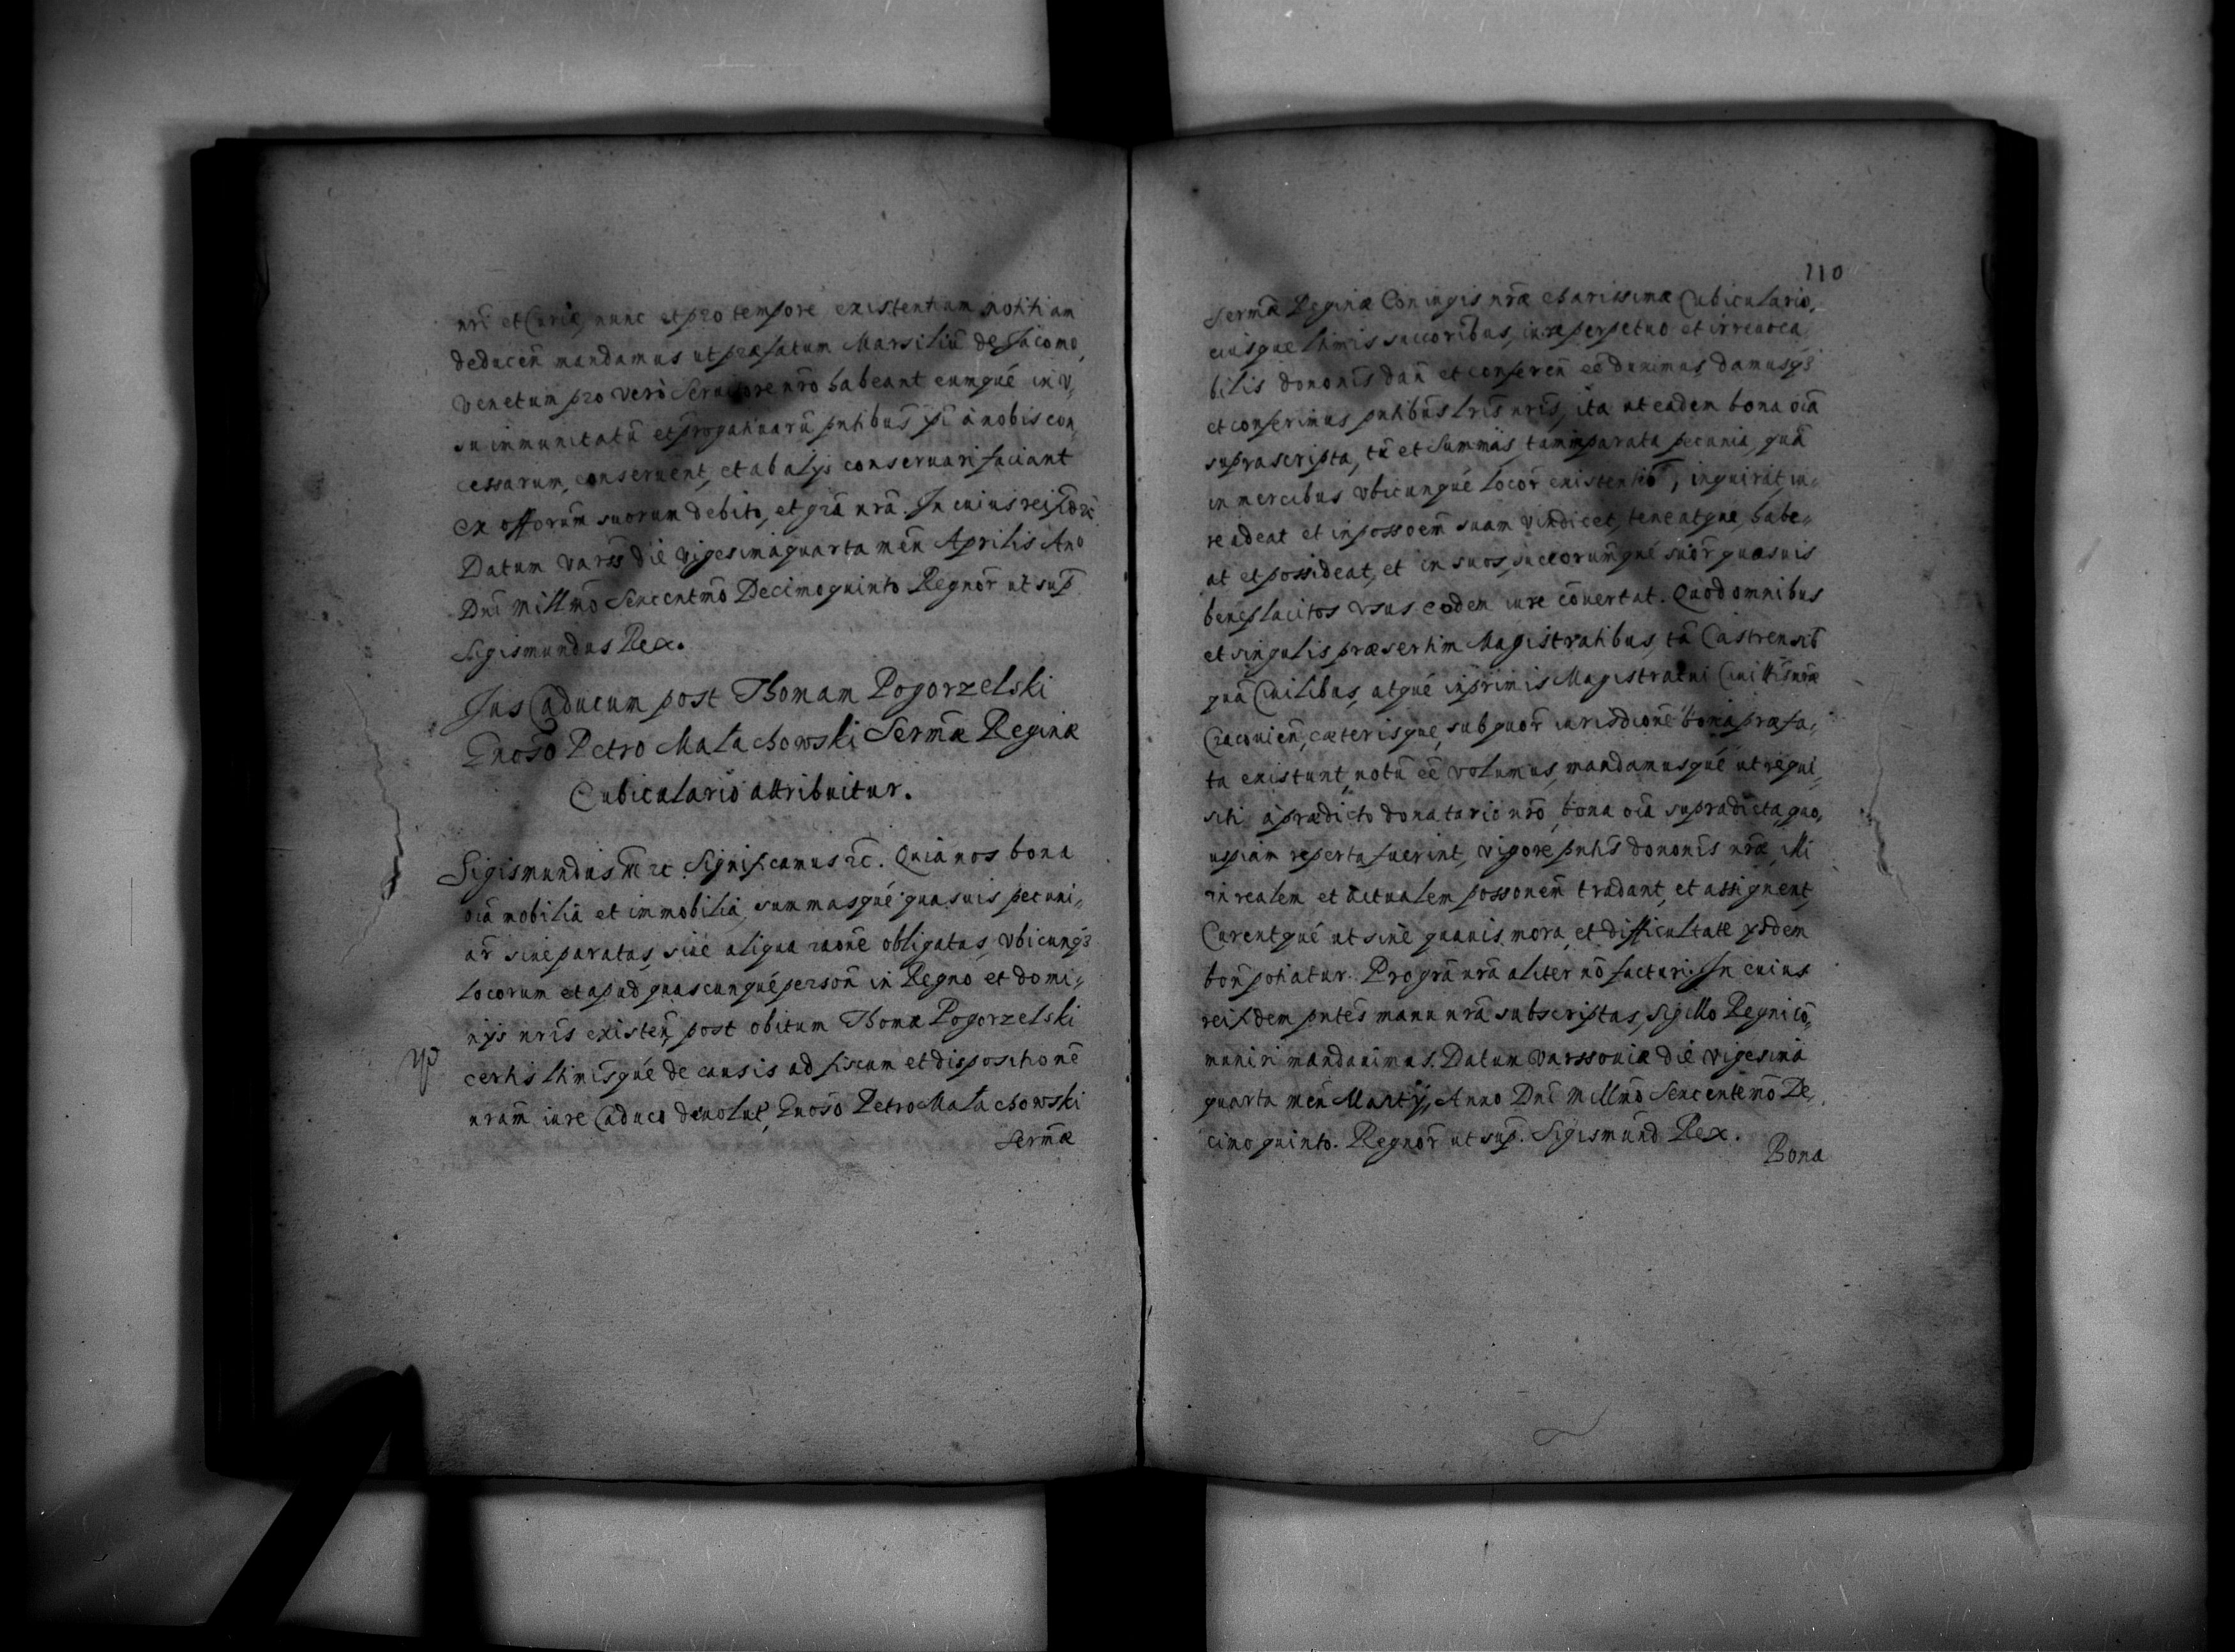 nrī et Curiæ, nunc et pro tempore existentium notitiam
deducen̄ mandamus ut præfatum Marsiliū de Jacomo,
Venetum pro vero Seruitore nrō habeant eumque in v,
su immunitatū et prærogatiuarū pntibus à nobis con,
cessarum, conseruent, et ab alijs conseruari faciant
ex offorum̄ suorum debito, et grā nrā. In cuius rei fidē ꝛc
Datum Vars die vigesima quarta men̄ Aprilis Ano
Dnī Millmō Sexcentmō Decimo quinto Regnor̄ ut sup̄
Sigismundus Rex.
Jus Caducum post Thomam Pogorzelski
Gnoso Petro Małachowski Sermæ Reginæ
Cubiculario attribuitur.
Sigismundus III ꝛc. Significamus ꝛc. Quia nos bona
oīa mobilia et immobilia, summasque quasuis pecuni,,
ar̄ siue paratas, siue aliqua raōne obligatas, vbicunq3
locorum et apud quascunque person̄ in Regno et domi,,
nijs nrīs existen̄, post obitum Thomæ Pogorzelski
certis ltimīsque de causis ad fiscum et dispositionē
nram̄ iure Caduco deuolut, Gnoso Petro Małachowski
Sermæ
110
Sermæ Reginæ Coniugis nræ charissimæ Cubiculario,
eiusque ltimis succoribus, iure perpetuo et irreuoca,
bilis dononīs dan̄ et conferen̄ eē duximus damusq3
et conferimus pntibus lrīs nrīs, ita ut eadem bona oīa
suprascripta, tū et Summas, tam in parata pecunia, quā
in mercibus vbicunque locor̄ existentib̄, inquirat, in,
re adeat et in possoem̄ suam vindicet, teneatque, habe,,
at et possideat, et in suos, succorumque suor̄ quasuis
beneplacitos vsus eodem iure cōuertat. Quod omnibus
et singulis præsertim Magistratibus, tā Castrensib̄
quā Ciuilibus, atque inprimis Magistratui Ciuittis nræ
Cracouien̄, cæterisque, sub quor̄ iurisdione bona præfa,
ta existunt, notū eē volumus, mandamusque ut requi,
siti à prædicto donatario nrō, bona oīa supradicta, quo,
uspiam reperta fuerint, vigore pntis dononīs nræ, illi
in realem et actualem possonem̄ tradant, et assignent,
Curentque ut sine quauis mora, et difficultate ijsdem
bon̄ potiatur. Pro grā nrā aliter nō facturi. In cuius
rei fidem pntes manu nrā subscriptas, sigillo Regni cō,
muniri mandauimus. Datum Varssouiæ die vigesima
quarta men̄ Martij, Anno Dnī Millmō Sexcentemō De,
cimo quinto. Regnor̄ ut sup̄. Sigismund Rex.
Bona